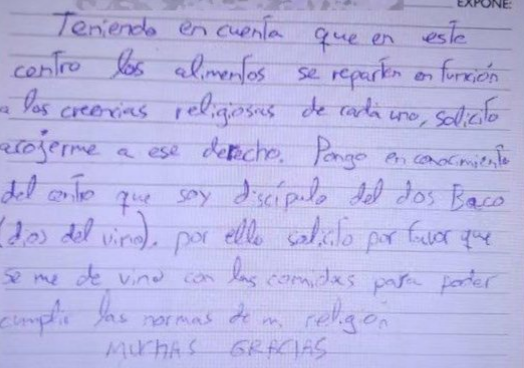 EXPONE:
Teniendo en cuenta que en este
centro los alimentos se reparten en función
a las creencias religiosas de cada uno, solicito
acojerme a ese derecho. Pongo en conocimiento
del centro que soy discípulo del dos Baco
(dios del vino). por ello solicito por favor que
se me de vino con las comidas para poder
cumplir las normas de mi religion
MUCHAS GRACIAS